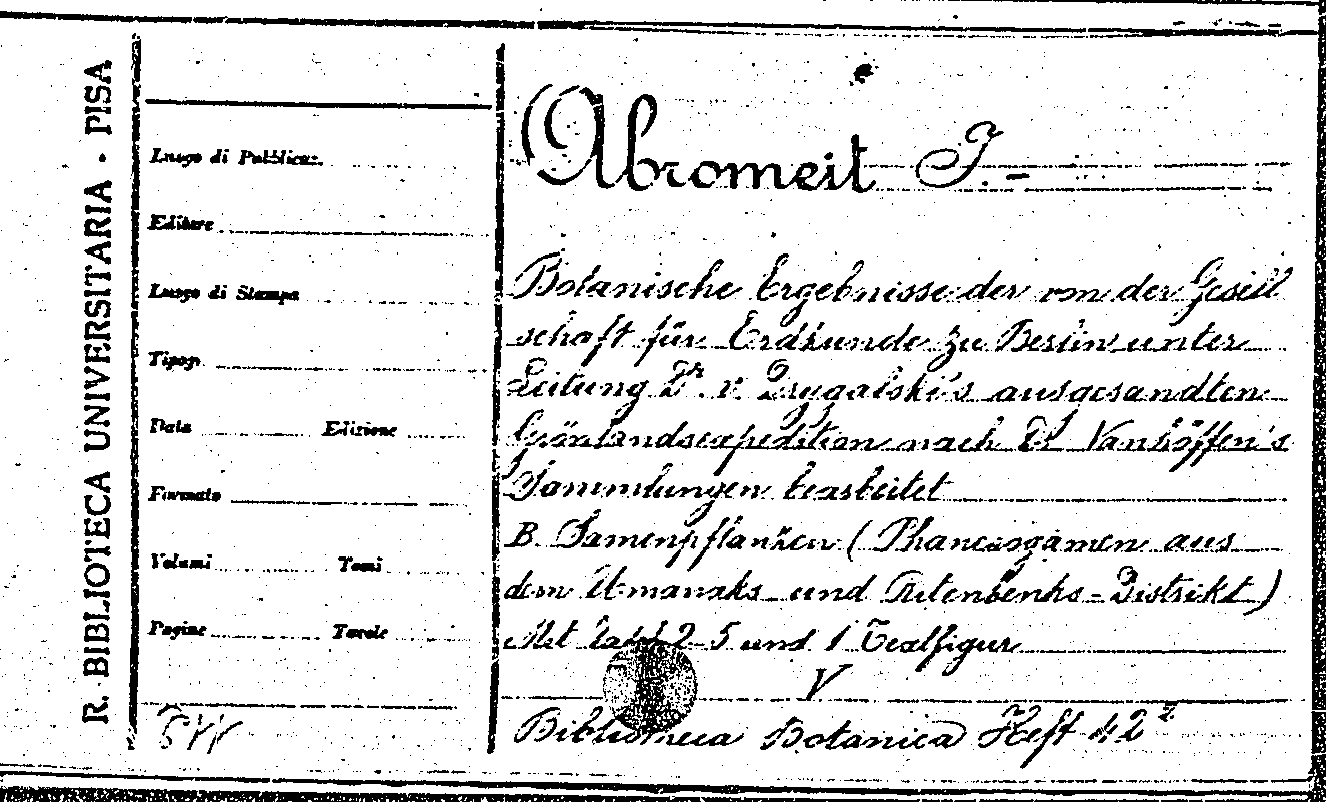 R. BIBLIOTECA UNIVERSITARIA - PISA
Luogo di Pubblicaz.
Editore
Luogo di Stampa
Tipogr.
Data Edizione
Formato
Volumi Tomi
Pagine Tavole
Abromeit J. -
Botanische Ergebnisse der von der Gesell
schaft für Erdkunde zu Berlin unter
Leitung Dr. v. Drygalski's ausgesandten
Grönlandsexpedition nach Dr Vanhöffen's
Sammlungen bearbeitet
B. Samenpflanzen (Phanerogamen aus
dem Umanaks und Ritenbenks - Distrikt)
Mit 2-5 und 1 Textfigur
V
Bibliotheca Botanica Heft 42